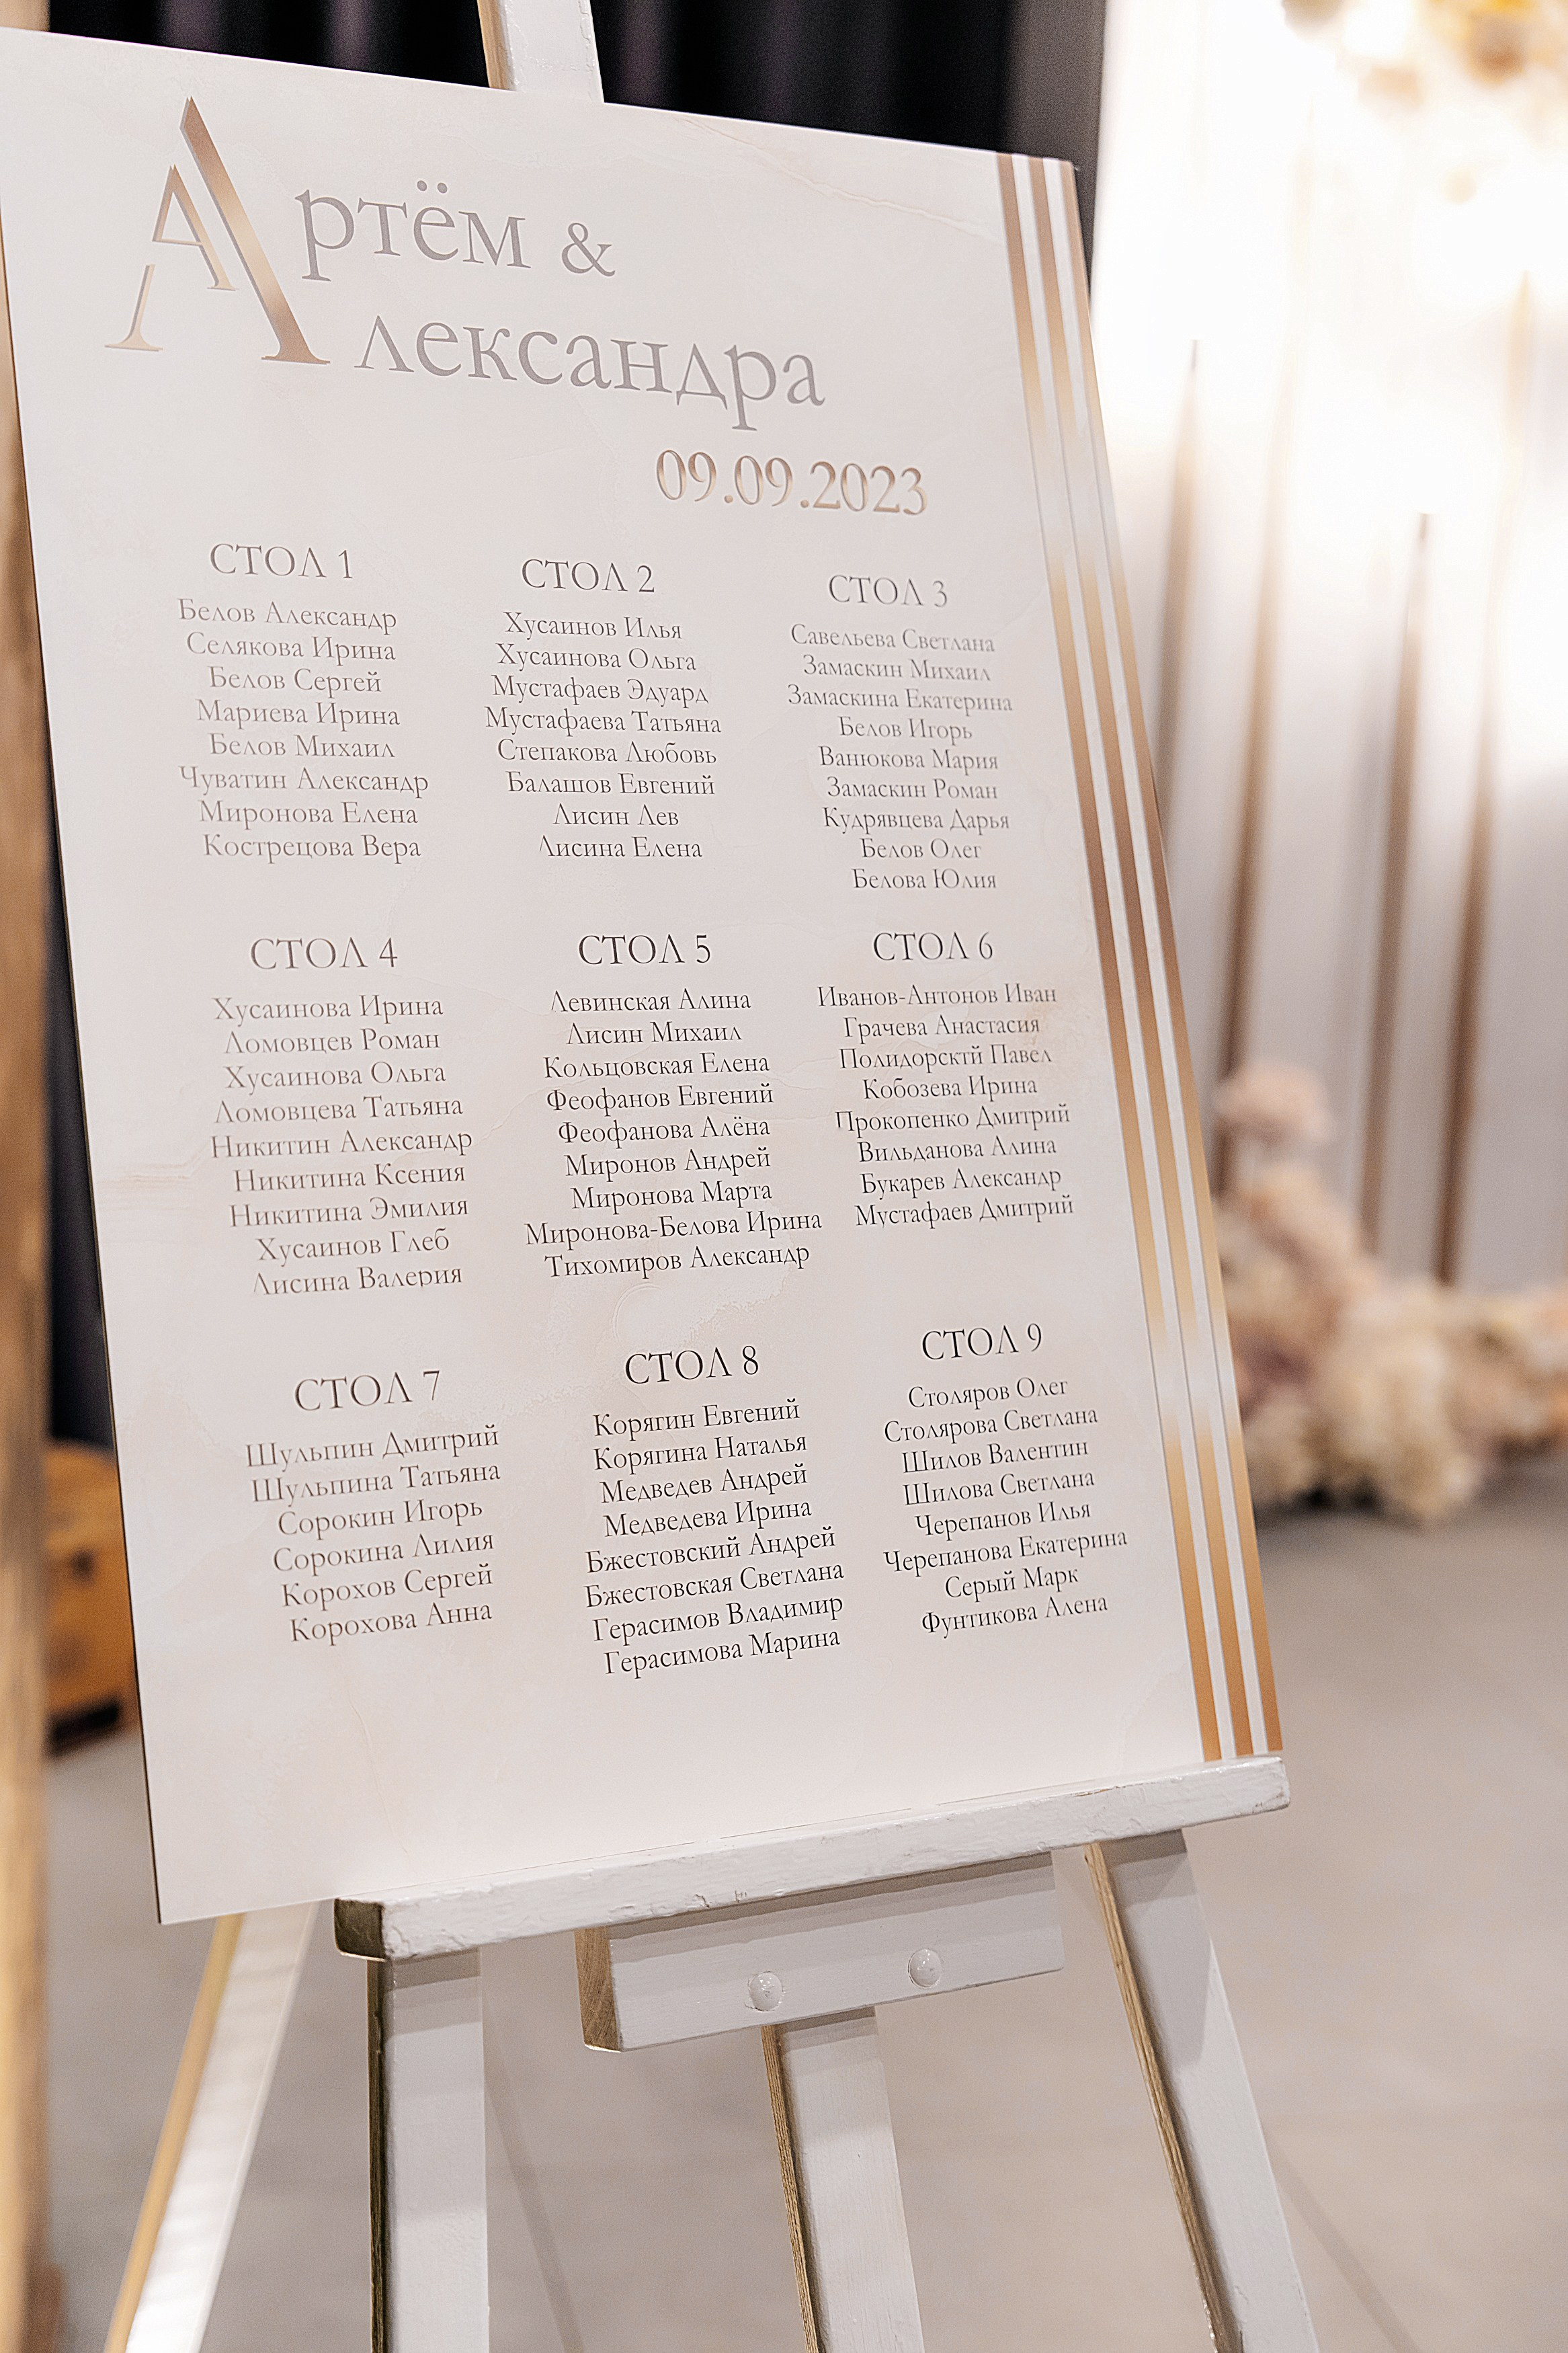 Артём &
Александра
09.09.2023
СТОЛ 1
Белов Александр
Селякова Ирина
Белов Сергей
Мариева Ирина
Белов Михаил
Чуватин Александр
Миронова Елена
Кострецова Вера
СТОЛ 2
Хусаинов Илья
Хусаинова Ольга
Мустафаев Эдуард
Мустафаева Татьяна
Степакова Любовь
Балашов Евгений
Лисин Лев
Лисина Елена
СТОЛ 3
Савельева Светлана
Замаскин Михаил
Замаскина Екатерина
Белов Игорь
Ванюкова Мария
Замаскин Роман
Кудрявцева Дарья
Белов Олег
Белова Юлия
СТОЛ 4
Хусаинова Ирина
Ломовцев Роман
Хусаинова Ольга
Ломовцева Татьяна
Никитин Александр
Никитина Ксения
Никитина Эмилия
Хусаинов Глеб
Лисина Валерия
СТОЛ 5
Левинская Алина
Лисин Михаил
Кольцовская Елена
Феофанов Евгений
Феофанова Алёна
Миронов Андрей
Миронова Марта
Миронова-Белова Ирина
Тихомиров Александр
СТОЛ 6
Иванов-Антонов Иван
Грачева Анастасия
Полидорсктй Павел
Кобозева Ирина
Прокопенко Дмитрий
Вильданова Алина
Букарев Александр
Мустафаев Дмитрий
СТОЛ 7
Шульпин Дмитрий
Шульпина Татьяна
Сорокин Игорь
Сорокина Лилия
Корохов Сергей
Корохова Анна
СТОЛ 8
Корягин Евгений
Корягина Наталья
Медведев Андрей
Медведева Ирина
Бжестовский Андрей
Бжестовская Светлана
Герасимов Владимир
Герасимова Марина
СТОЛ 9
Столяров Олег
Столярова Светлана
Шилов Валентин
Шилова Светлана
Черепанов Илья
Черепанова Екатерина
Серый Марк
Фунтикова Алена